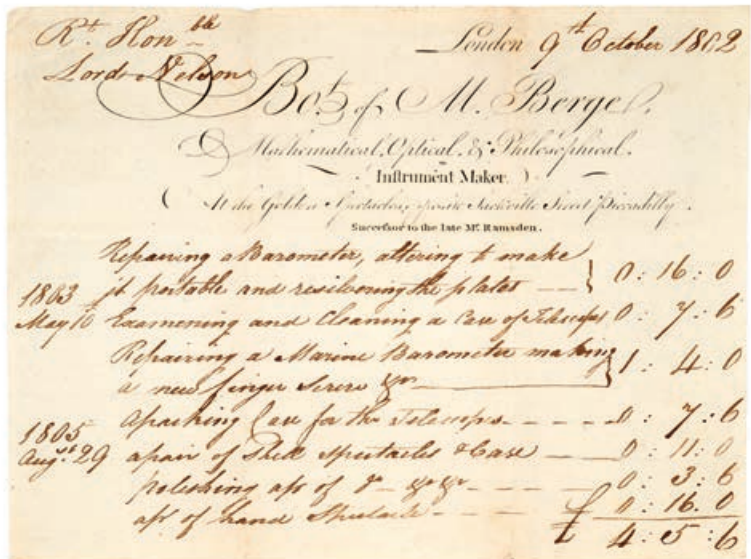 Rt. Hon ble
London 9th October 1802
Lord Nelson
Bot. of M. Berge.
Mathematical, Optical, & Philosophical.
Instrument Maker.
At the Golden Spectacles, opposite Sackville Street Piccadilly.
Successor to the late Mr. Ramsden.
Repairing a Barometer, altering to make
it portable and resilvering the plates 0 : 16 : 0
1803
May 10 Examening and Cleaning a Case of 0 : 7 : 6
Repairing a Marine Barometer making
a new finger Screw &c 1 : 4 : 0
1805
a packing Case for the Telescopes 0 : 7 : 6
Augst. 29 a pair of Shell Spectacles & Case 0 : 11 : 0
polishing a pr of do &c &c 0 : 3 : 6
a pr of hand 0 : 16 : 0
£ 4 : 5 : 6